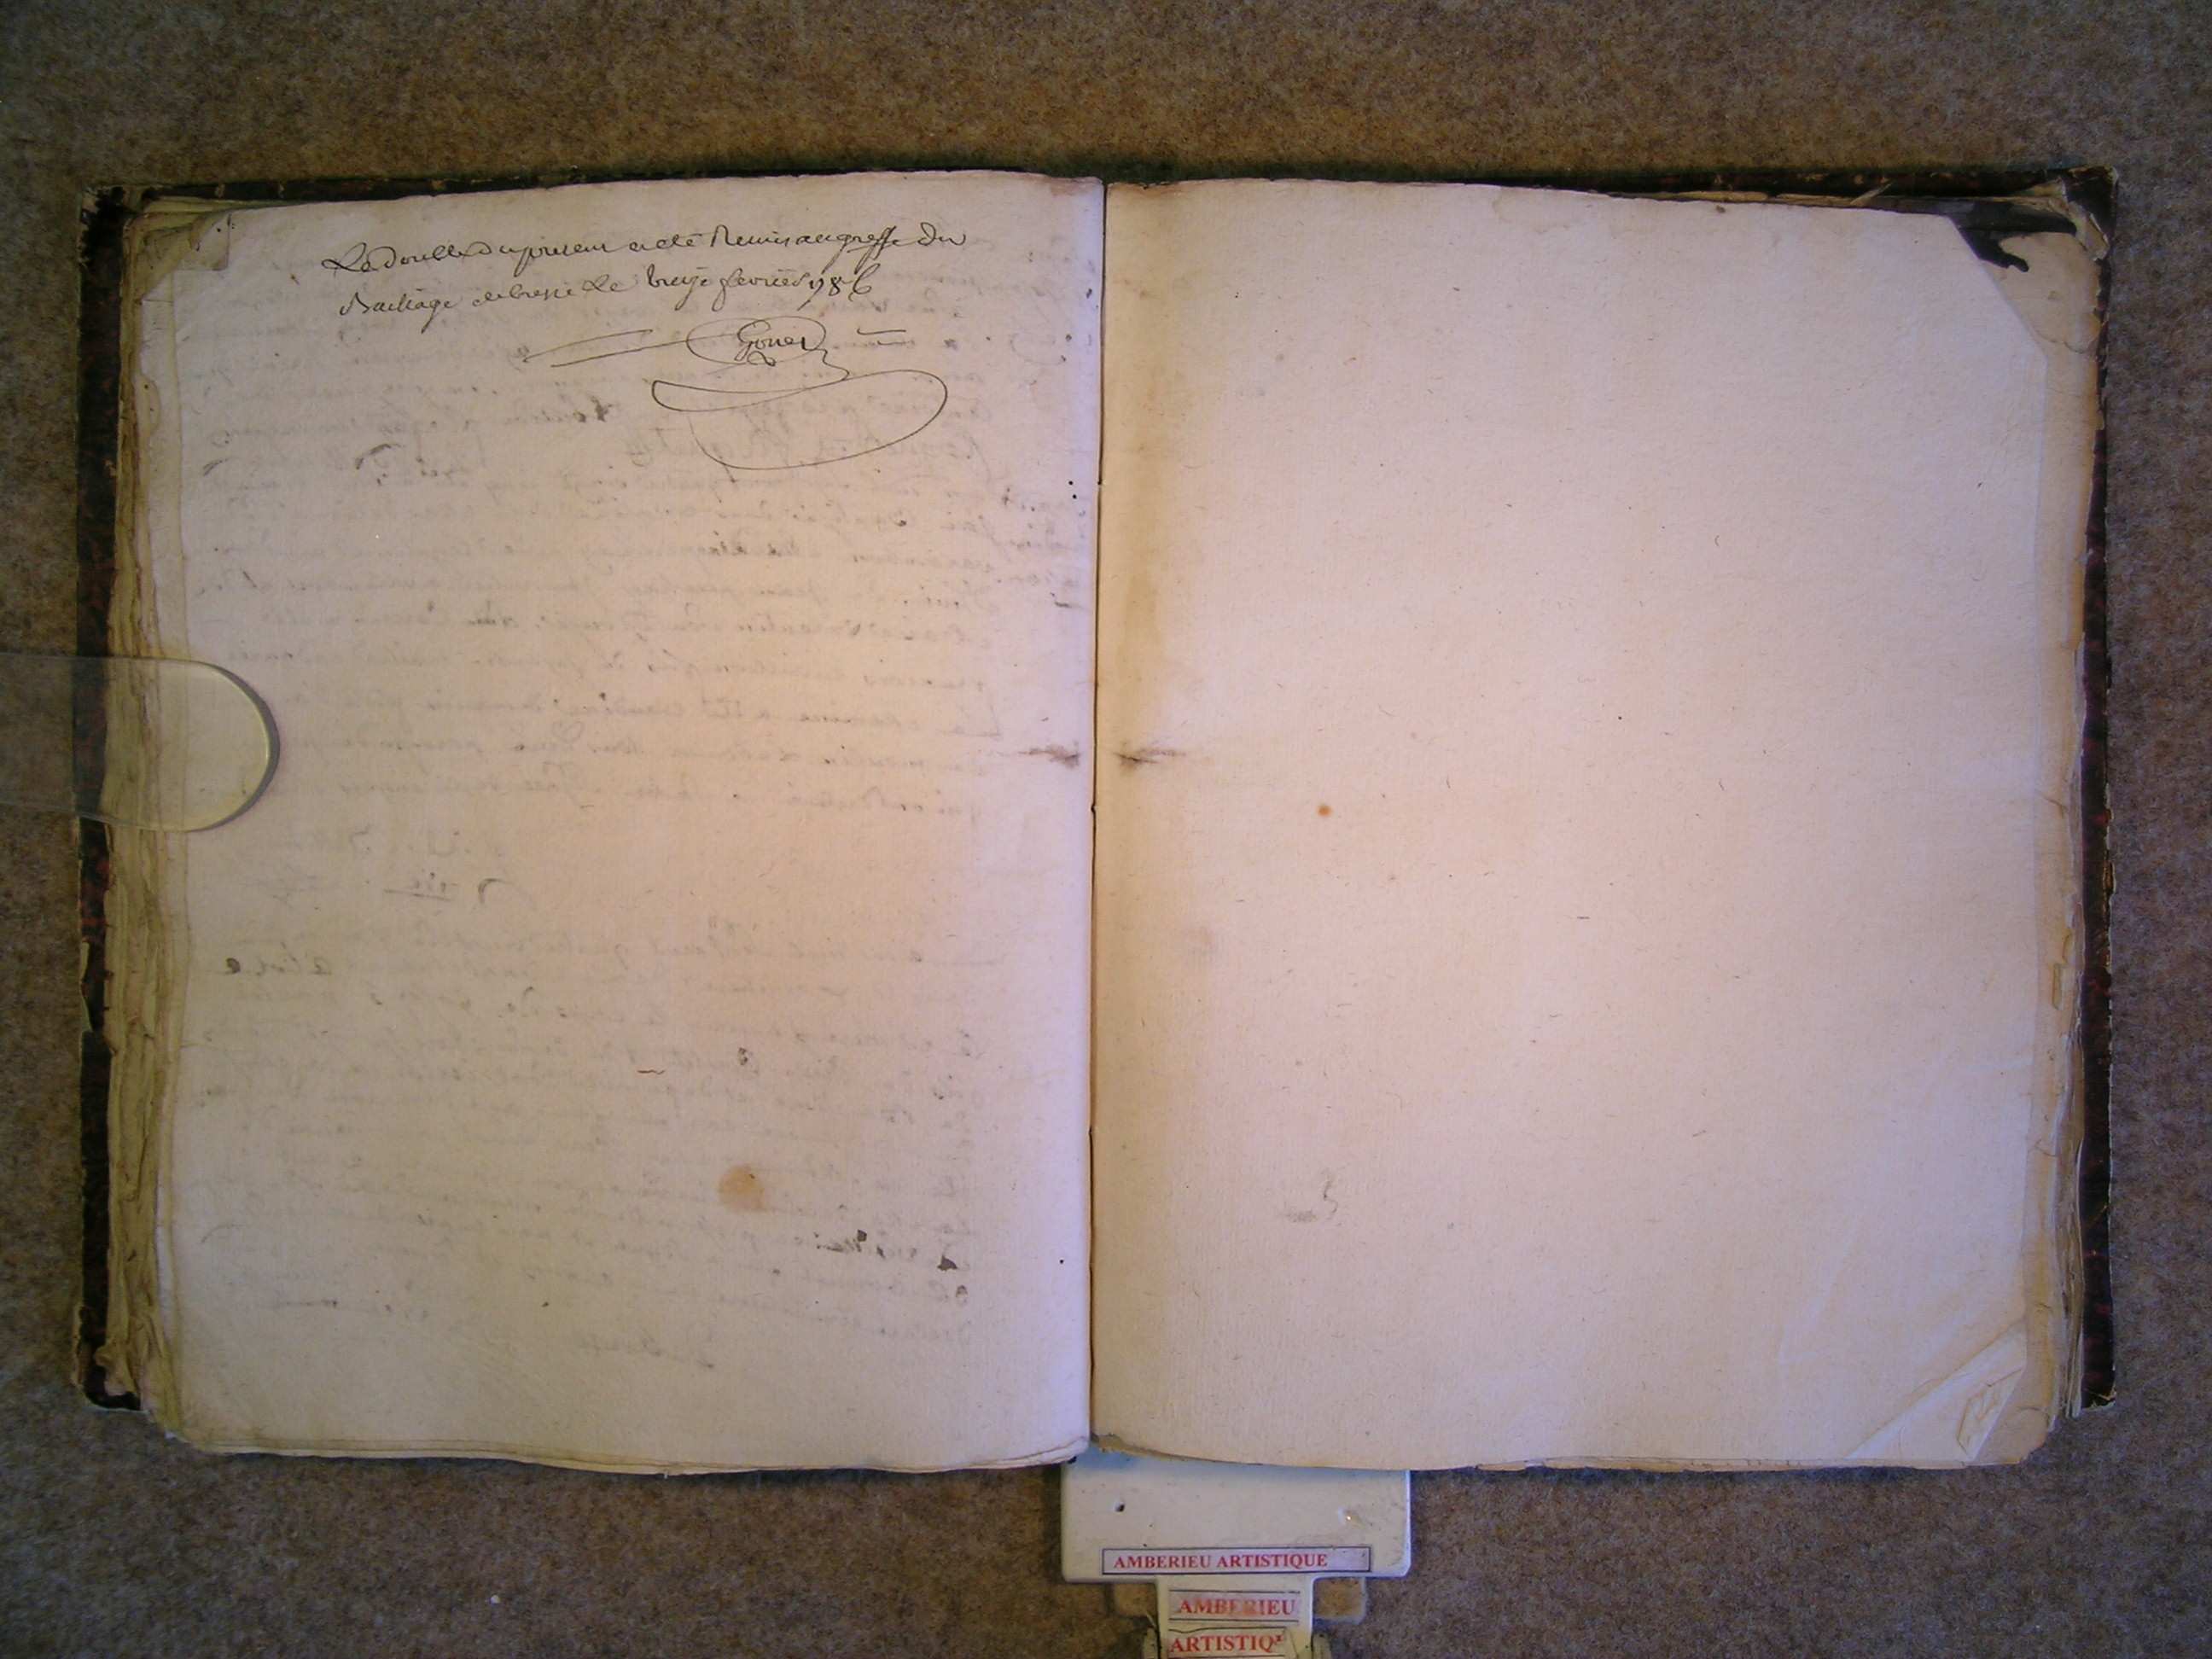 Le double du present a eté Remis au greffe du
Bailliage de bresse le treize fevrier 1786
Goiier
AMBERIEU ARTISTIQUE
AMBERIEU
ARTISTIQ